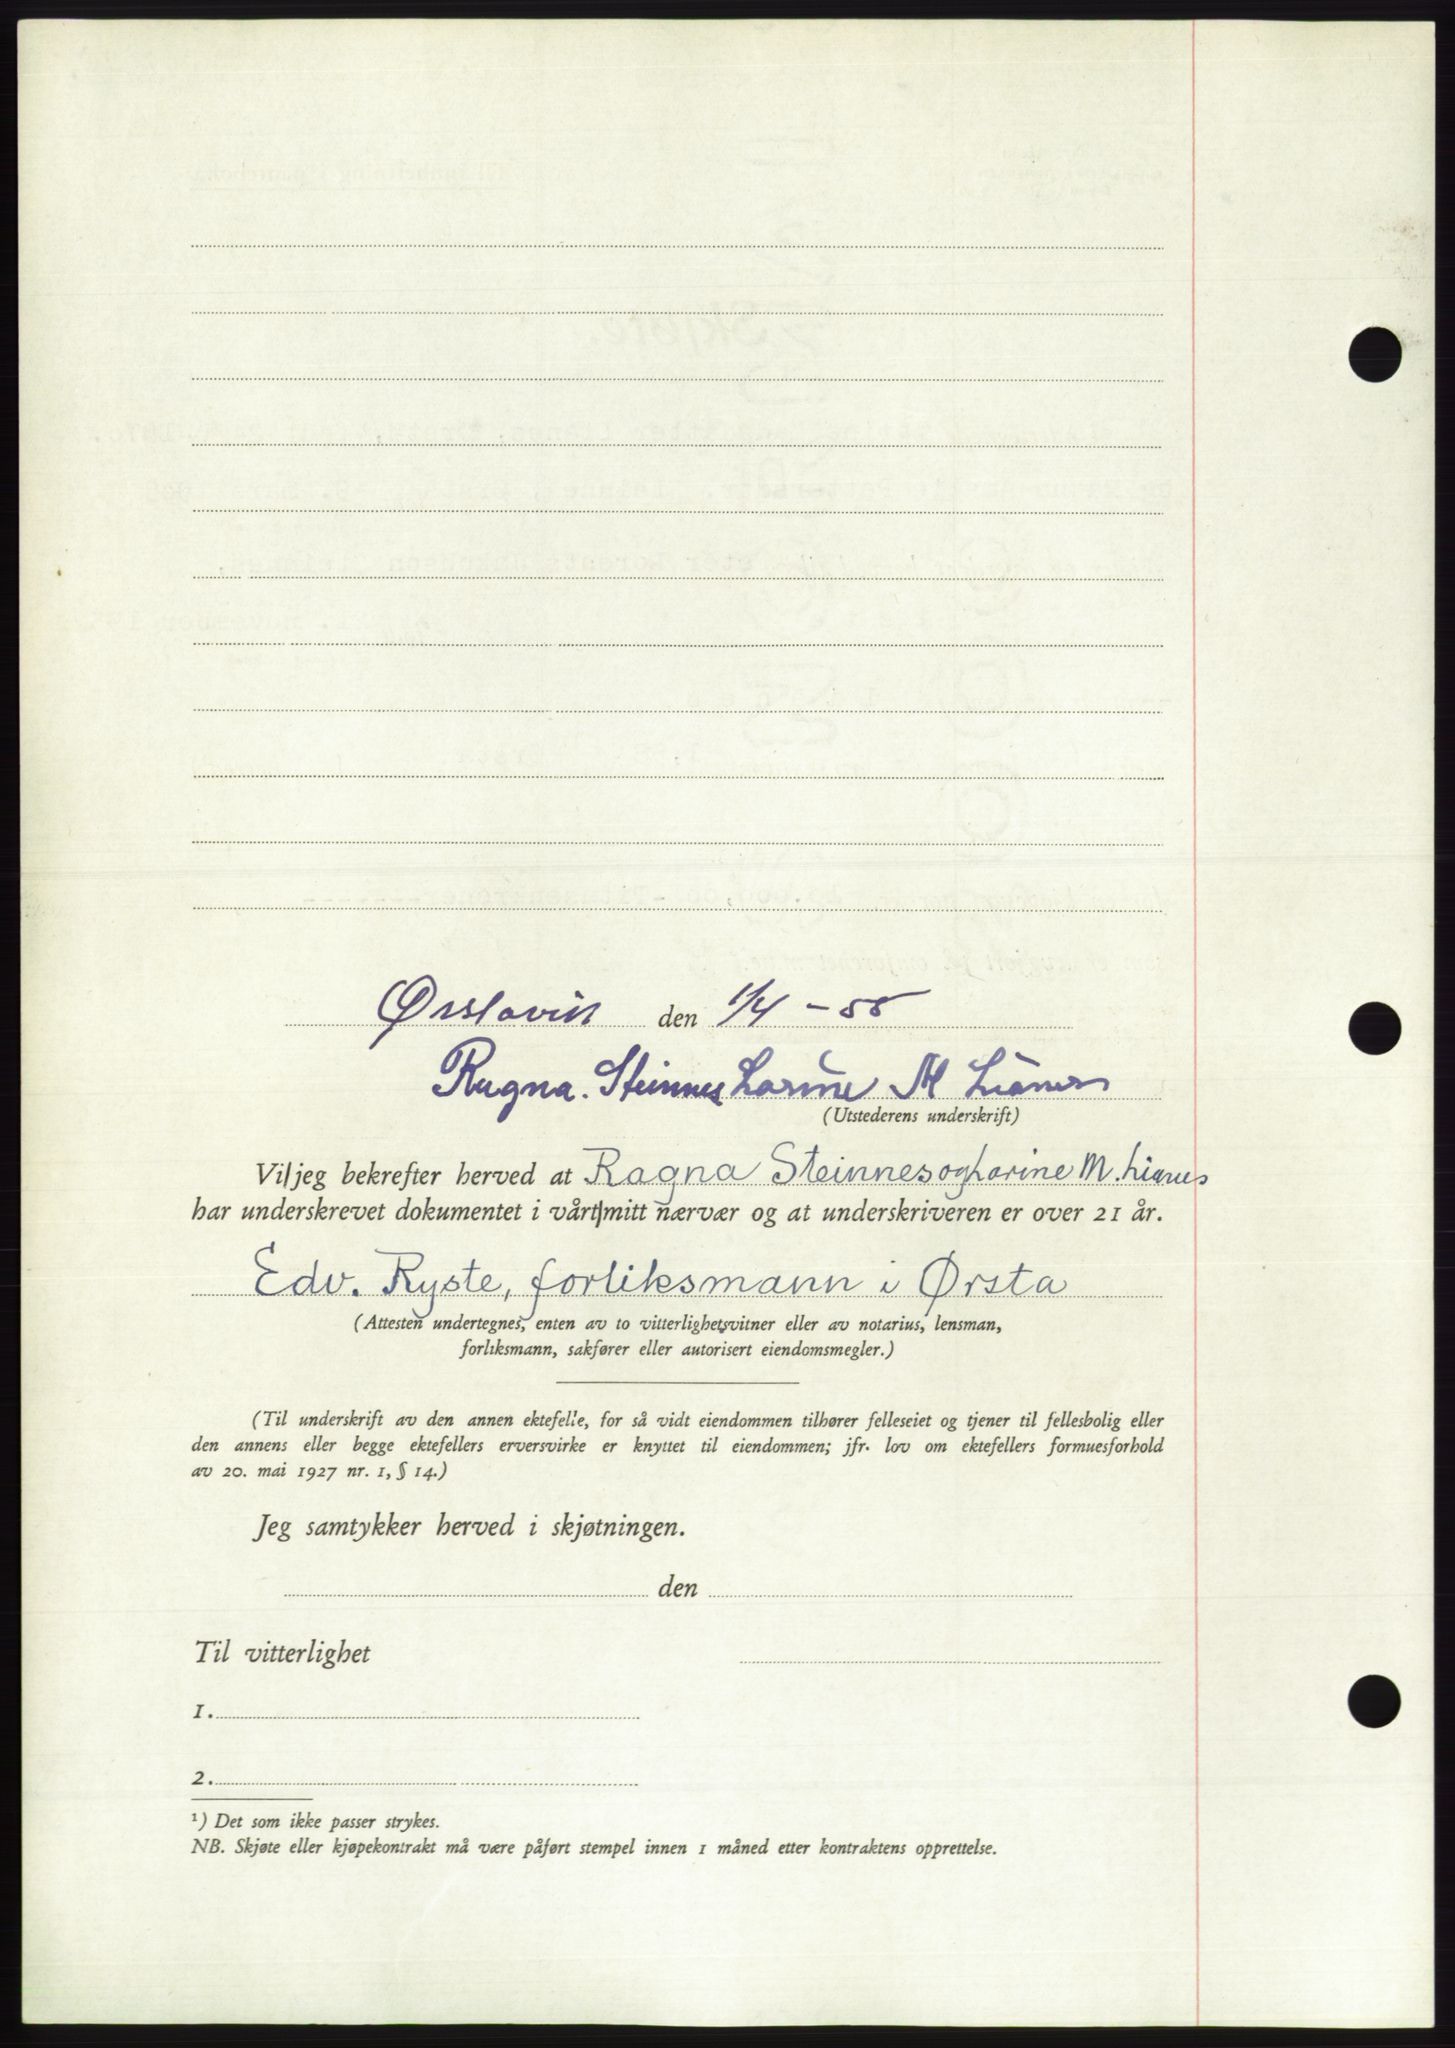 Ørstavik den 1/4 – 55
Ragna. Steinnes Larine M Lianes
(Utstederens underskrift)
Vi/jeg bekrefter herved at Ragna Steinnes og Larine M. Lianes
har underskrevet dokumentet i vårt/mitt nærvær og at underskriveren er over 21 år.
Edv. Ryste, forliksmann i Ørsta
(Attesten undertegnes, enten av to vitterlighetsvitner eller av notarius, lensman,
forliksmann, sakfører eller autorisert eiendomsmegler.)
(Til underskrift av den annen ektefelle, for så vidt eiendommen tilhører felleseiet og tjener til fellesbolig eller
den annens eller begge ektefellers erversvirke er knyttet til eiendommen; jfr. lov om ektefellers formuesforhold
av 20. mai 1927 nr. 1, § 14.)
Jeg samtykker herved i skjøtningen.
den
Til vitterlighet
1.
2.
¹) Det som ikke passer strykes.
NB. Skjøte eller kjøpekontrakt må være påført stempel innen 1 måned etter kontraktens opprettelse.